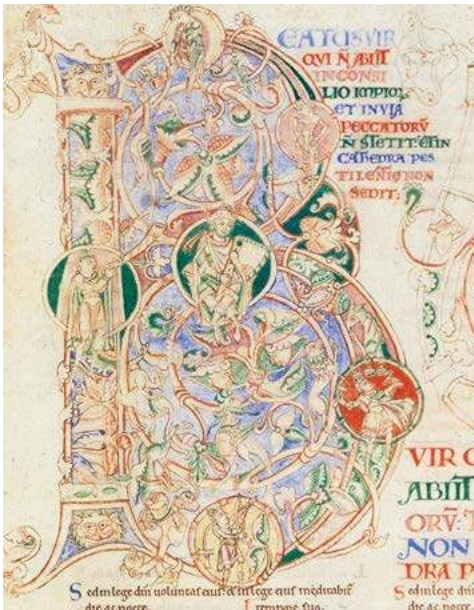 EATUS VIR
QVI N̄ ABIIT
IN CONSI
LIO IMPIOR,
ET IN VIA
PECCATORV̄
N̄ STETIT: ET IN
CAThEDRA PES
NON
SEDIT;
VIR
ABIIT
ORV̄:
NON
DRA P
Sed in lege dn̄i uoluntas eius: & in lege eius meditabit̄
die ac nocte. tempore suo.
Sed in lege dn̄i
die ac nocte.